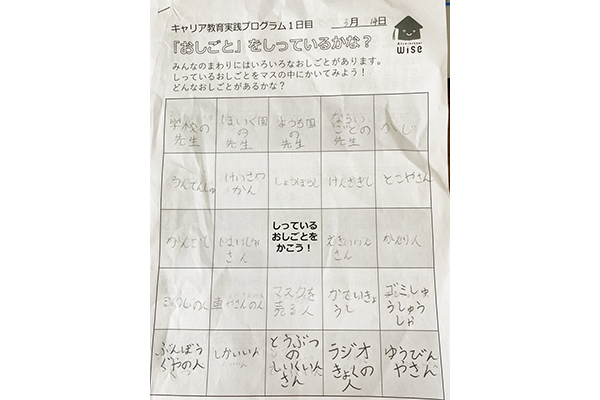 キャリア教育実践プログラム1日目
3月 14日
wise
『おしごと』をしっているかな？
みんなのまわりにはいろいろなおしごとがあります。
しっているおしごとをマスの中にかいてみよう！
どんなおしごとがあるかな？
学校の
先生
ほいく園
の
先生
ようち園
の
先生
ならい
ごとの
先生
かじ
うんてんしゅ
けいさつ
かん
しょうぼうし
けんさぎし
とこやさん
かんごし
さん
しっている
おしごとを
かこう！
えきいん
さん
かんり人
車やさんの人
マスクを
売る人
かていきょ
うし
ゴミしゅ
うしゅう
しゃ
ぶんぼう
ぐやの人
しかいいん
さん
どうぶつ
の
しいくいん
さん
ラジオ
きょくの
人
ゆうびん
やさん